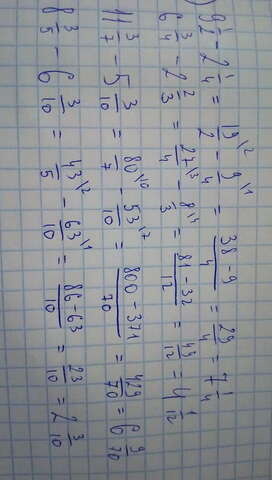 9 1/2 - 2 1/4 = 19/2 \2 - 9/4 \1 = 38-9/4 = 29/4 = 7 1/4
6 3/4 - 2 2/3 = 27/4 \3 - 8/3 \4 = 81-32/12 = 49/12 = 4 1/12
11 3/7 - 5 3/10 = 80/7 \10 - 53/10 \7 = 800-371/70 = 429/70 = 6 9/70
8 3/5 - 6 3/10 = 43/5 \2 - 63/10 \1 = 86-63/10 = 23/10 = 2 3/10